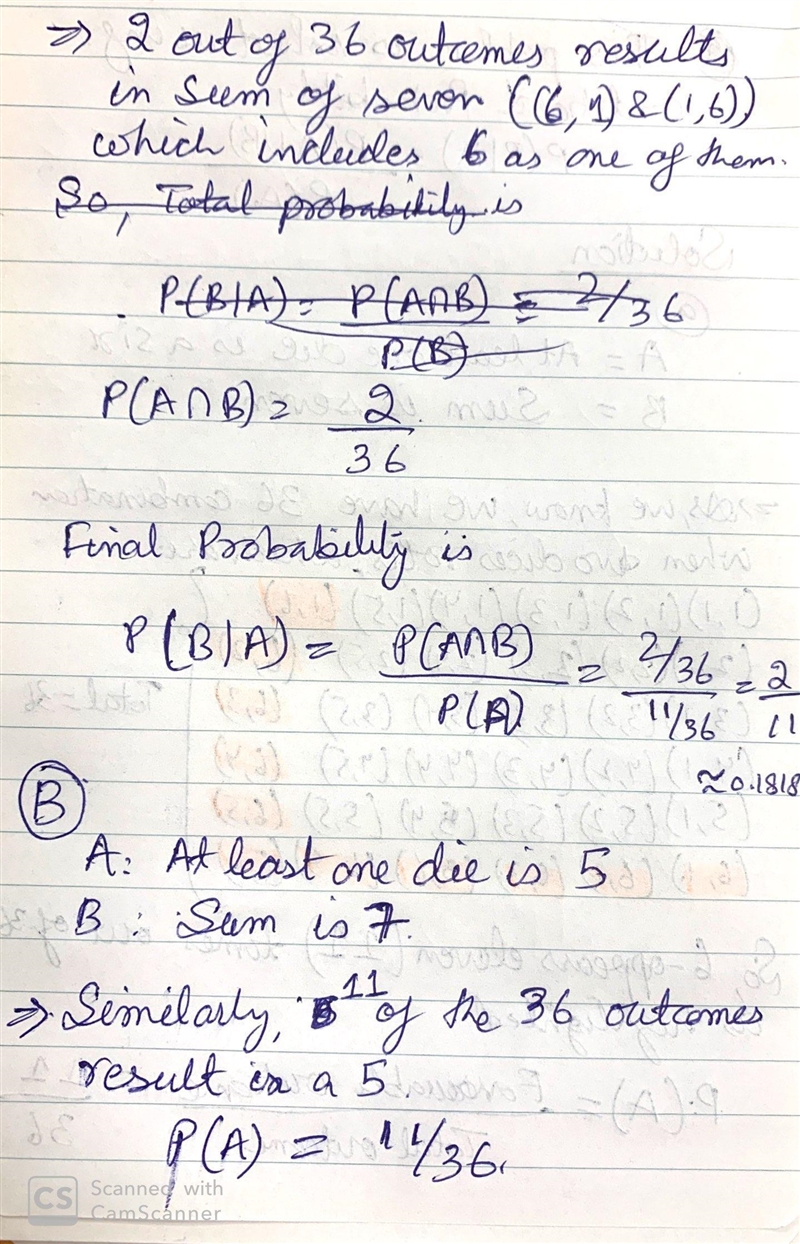 ⇒ 2 out of 36 outcomes results
in Sum of seven ((6,1) & (1,6))
which includes 6 as one of them.
So, Total probability is
P(B|A) = P(A∩B) / P(B) = 2/36
P(A∩B) = 2/36
Final Probability is
P(B|A) = P(A∩B) / P(A) = 2/36 / 11/36 = 2/11
≈ 0.1818
B
A: At least one die is 5
B: Sum is 7.
⇒ Similarly, 11 of the 36 outcomes
result in a 5.
P(A) = 11/36.
CS Scanned with
CamScanner